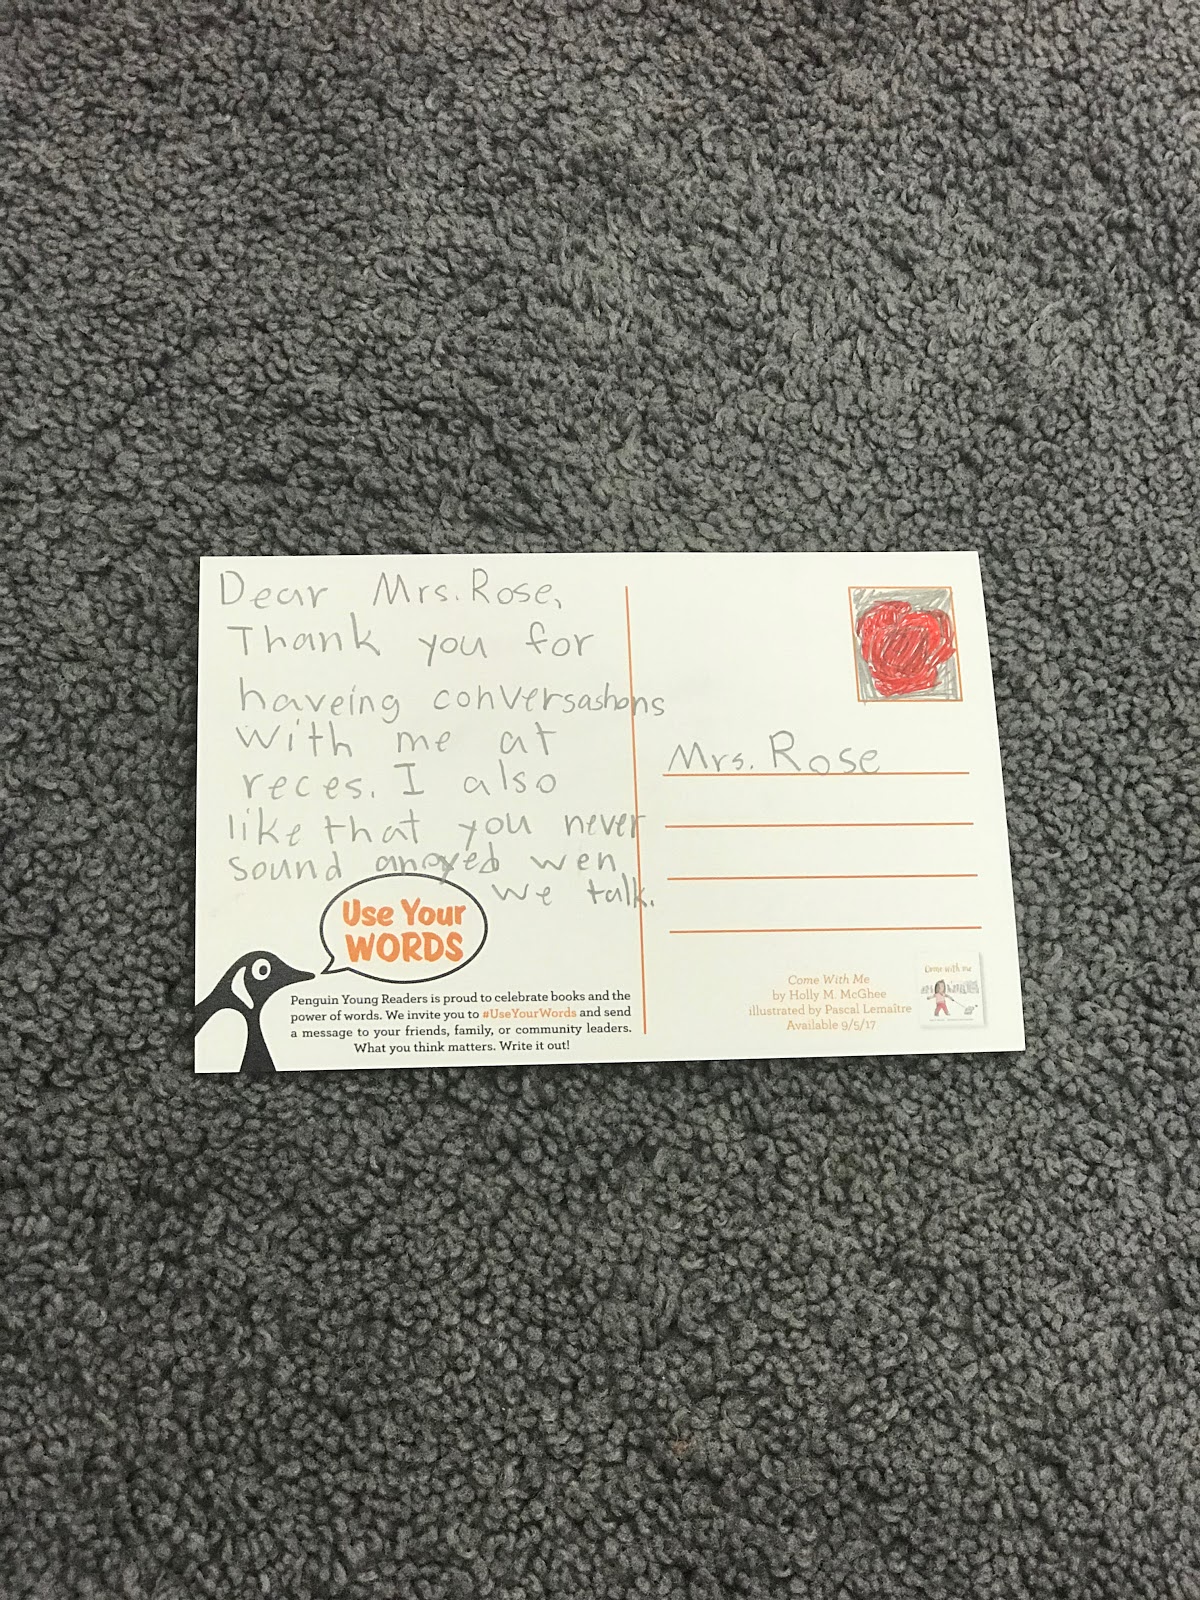 Dear Mrs. Rose,
Thank you for
haveing conversashons
with me at
reces. I also
like that you never
sound anoyed wen
we talk.
Use Your
WORDS
Penguin Young Readers is proud to celebrate books and the
power of words. We invite you to #UseYourWords and send
a message to your friends, family, or community leaders.
What you think matters. Write it out!
Mrs. Rose
Come With Me
by Holly M. McGhee
illustrated by Pascal Lemaître
Available 9/5/17
Come with me